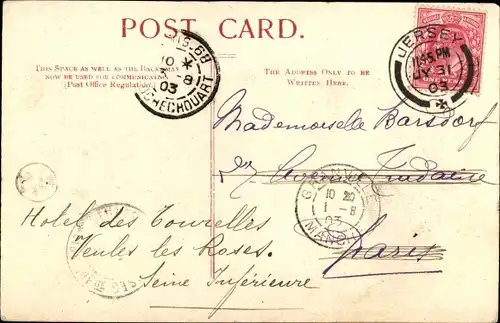 POST CARD.
THIS SPACE AS WELL AS THE BACK MAY
NOW BE USED FOR COMMUNICATION
(Post Office Regulation).
THE ADDRESS ONLY TO BE
WRITTEN HERE.
10 *
03
ROCHECHOUART
JERSEY
03
Mademoiselle Barsdorf
Avenue Trudaine
10 20
1 - 8
03
MANCHE
Hotel des Tourelles
Veules les Roses.
Paris
Seine Inférieure